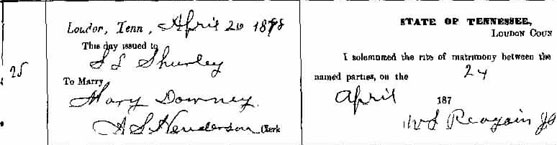 Loudon, Tenn, April 20 1878
This day issued to
S L Shurley
25
To Marry,
Mary Downey.
A S Henderson Clerk
STATE OF TENNESSEE,
LOUDON COUN
I solemnized the rite of matrimony between the
named parties, on the 24
April 187
W S Reagain JP